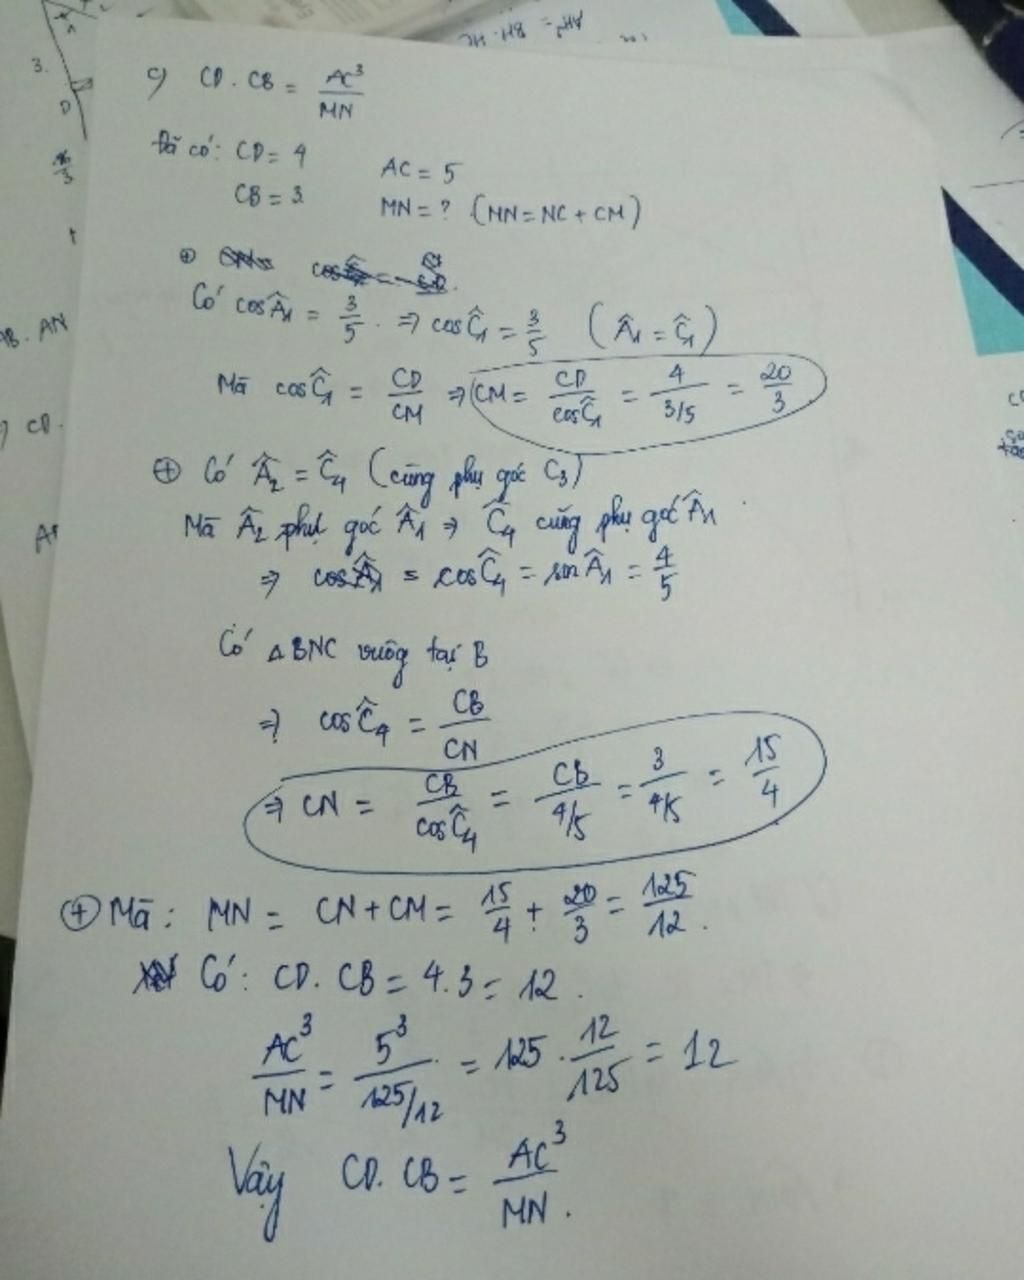 AH² = BH. HC
3.
D
c) CD. CB = AC³/MN
Đã có: CD = 4 AC = 5
CB = 3 MN = ? (MN = NC + CM)
Có cosÂ₁ = 3/5 ⇒ cosĈ₁ = 3/5 (Â₁ = Ĉ₁)
Mà cosĈ₁ = CD/CM ⇒ CM = CD/cosĈ₁ = 4/(3/5) = 20/3
⊕ Có Â₂ = Ĉ₄ (cùng phụ góc C₃)
Mà Â₂ phụ góc Â₁ ⇒ Ĉ₄ cũng phụ góc Â₁
⇒ cosĈ₄ = sinÂ₁ = 4/5
Có ΔBNC vuông tại B
⇒ cosĈ₄ = CB/CN
⇒ CN = CB/cosĈ₄ = CB/(4/5) = 3/(4/5) = 15/4
⊕ Mà: MN = CN + CM = 15/4 + 20/3 = 125/12.
Có: CD. CB = 4.3 = 12.
AC³/MN = 5³/(125/12) = 125 . 12/125 = 12
Vậy CD. CB = AC³/MN.
AB. AN
CD.